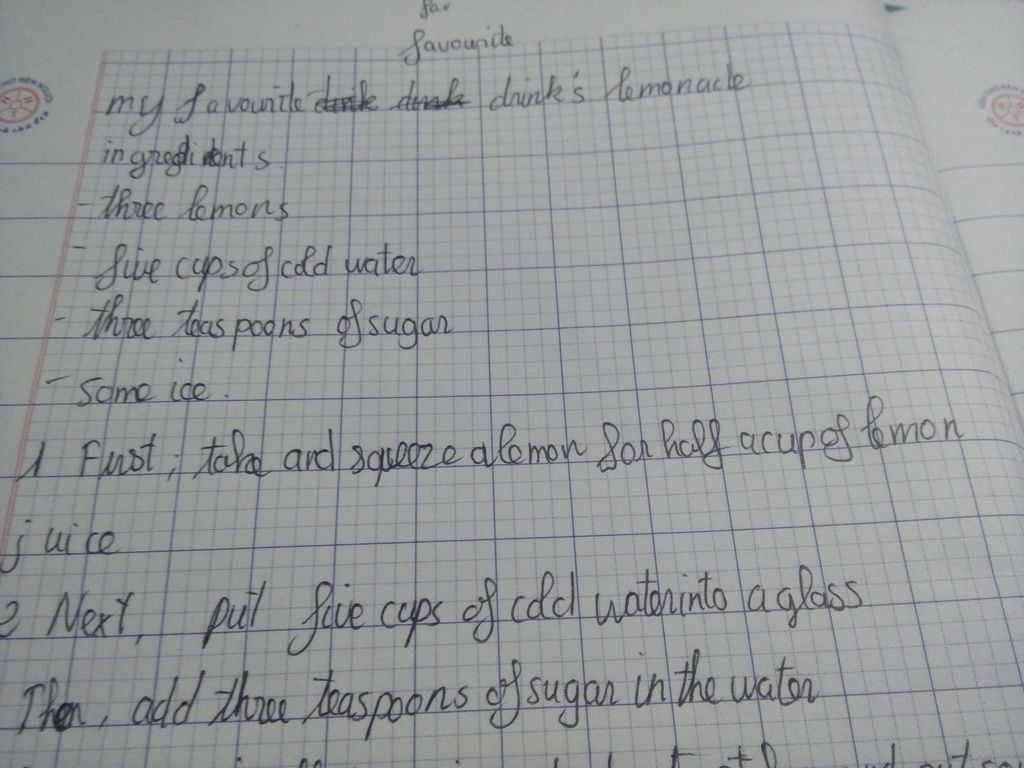 far
favourite
my favourite drink's lemonade
ingredients
- three lemons
- five cups of cold water
- three teaspoons of sugar
- some ice.
1 First, take and squeeze a lemon for half a cup of lemon
juice
2 Next, put five cups of cold water into a glass
Then, add three teaspoons of sugar in the water